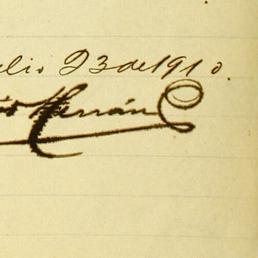 ulio 23 de 1910.
io Hernán